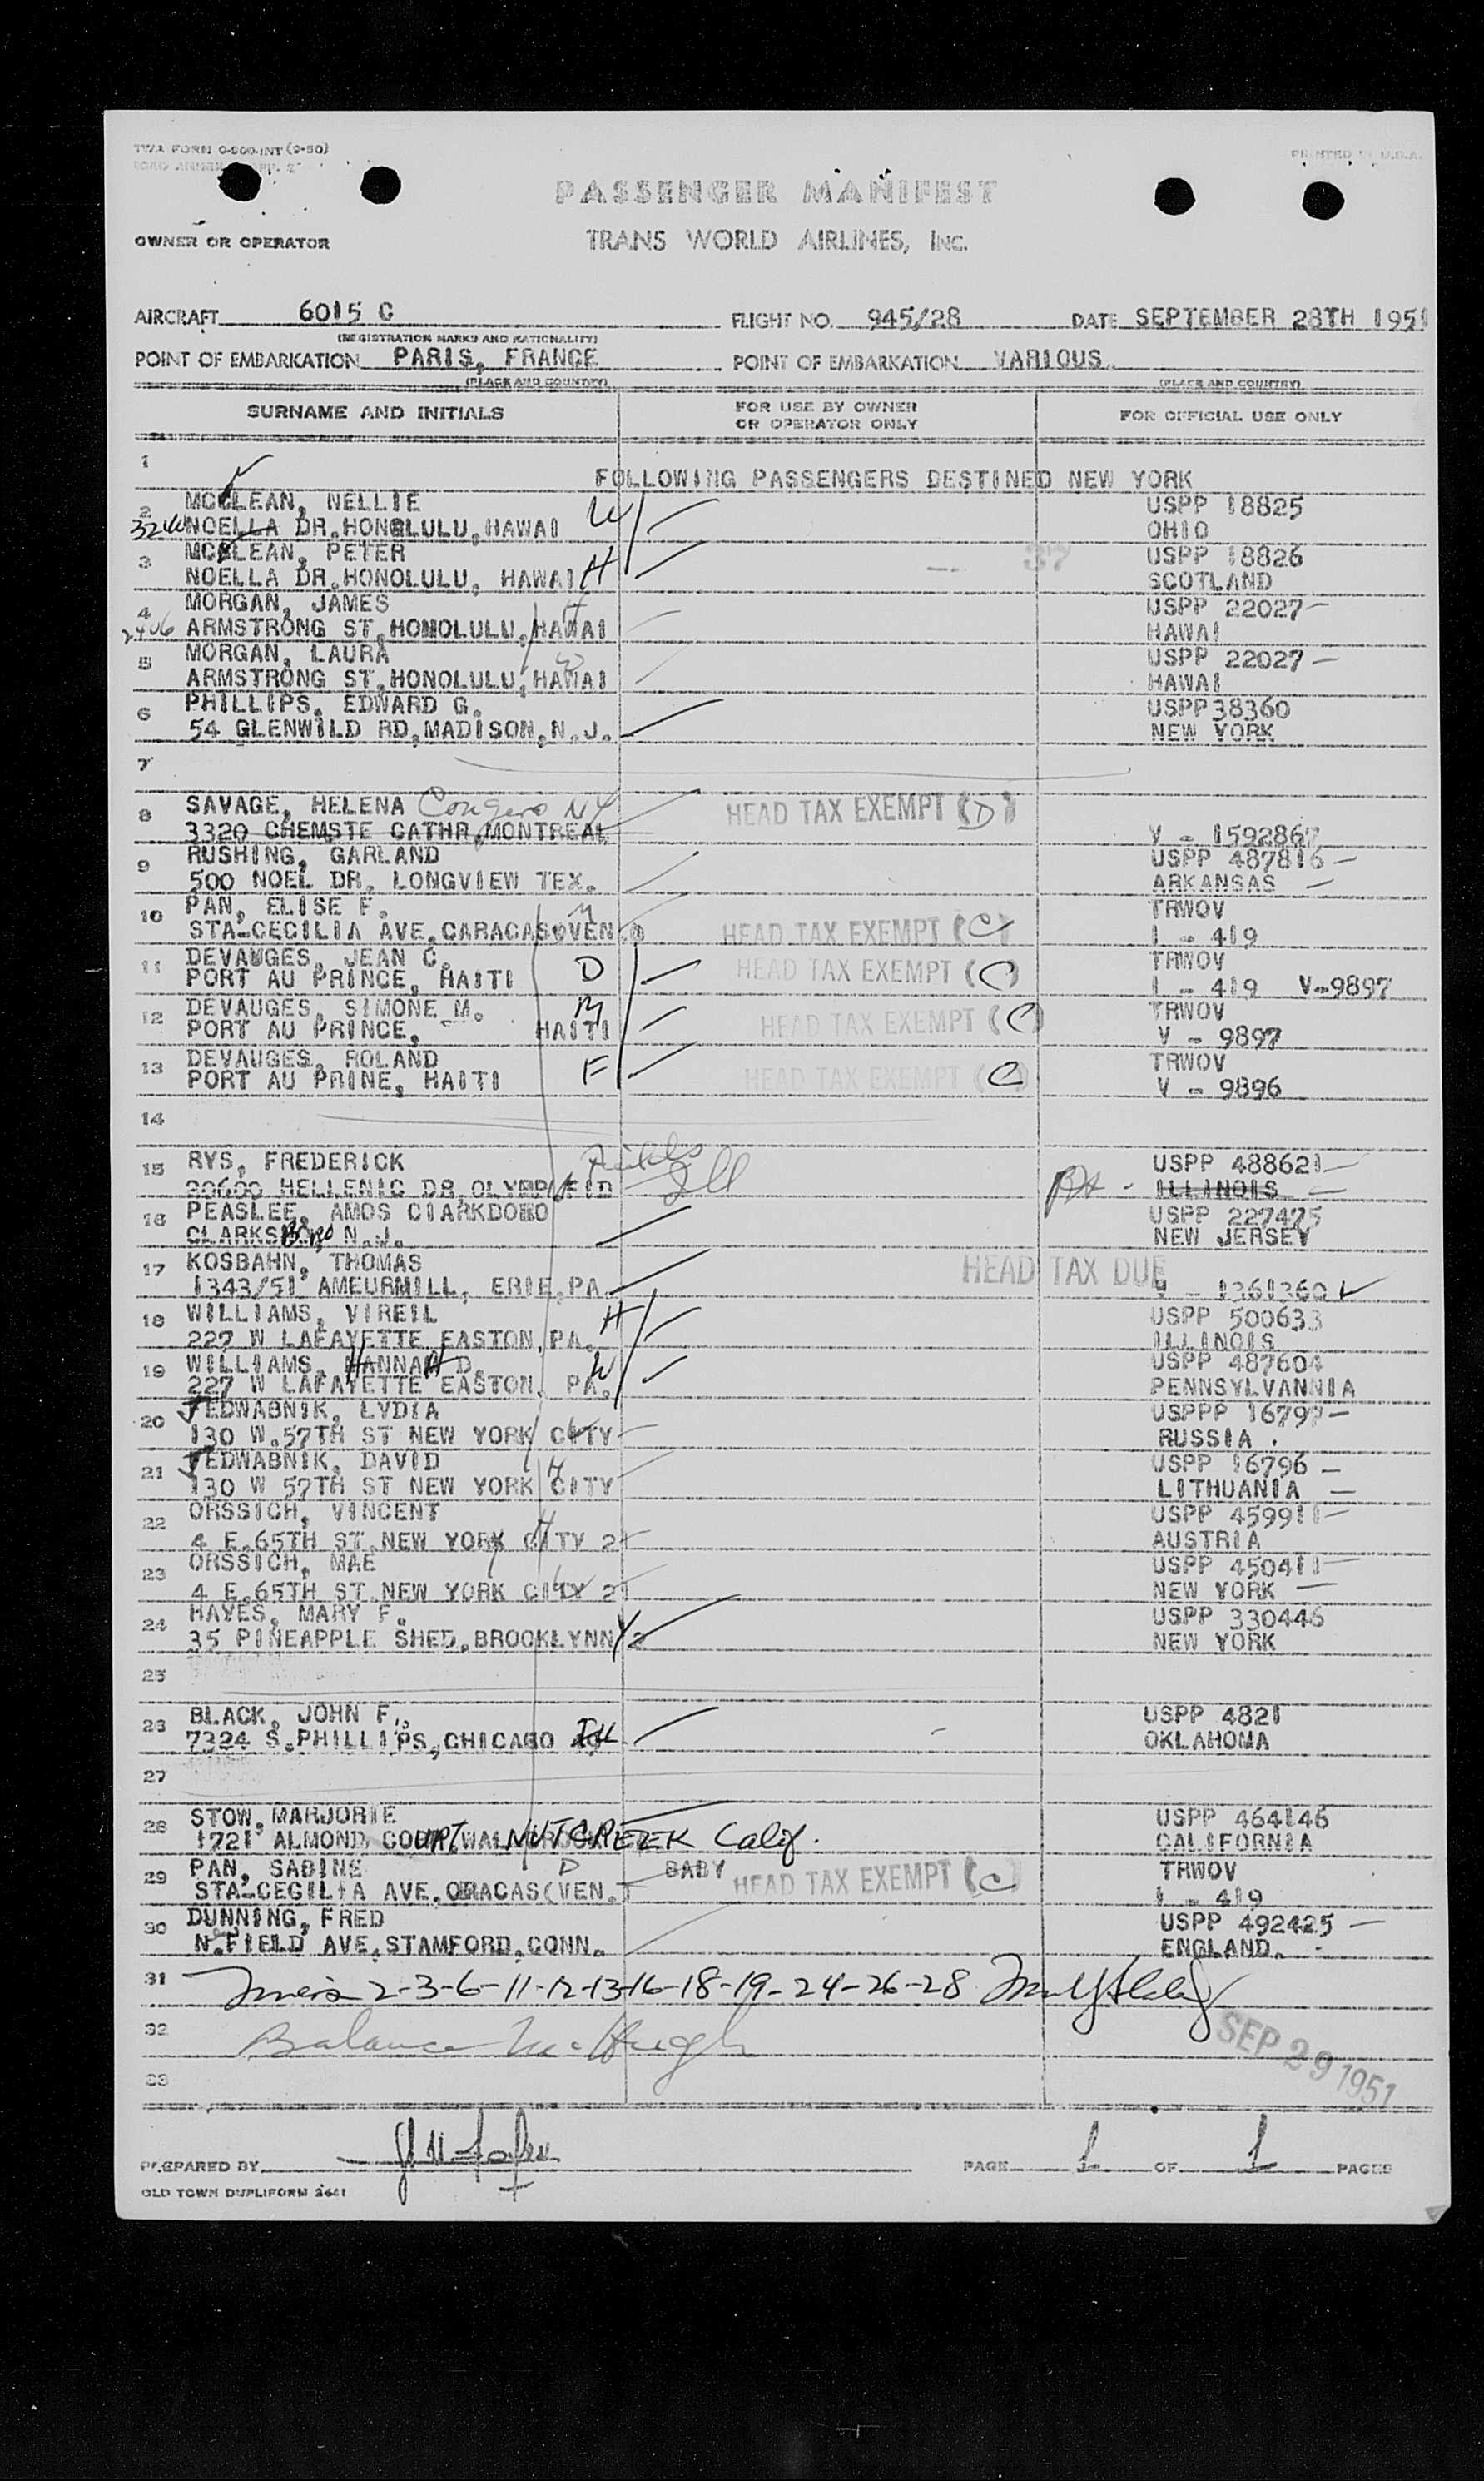 TWA FORM 0-900-INT (9-50)
PRINTED IN U.S.A.
PASSENGER MANIFEST
OWNER OR OPERATOR
TRANS WORLD AIRLINES, INC.
AIRCRAFT 6015 C FLIGHT NO. 945/28 DATE SEPTEMBER 28TH 1951
(REGISTRATION MARKS AND NATIONALITY)
POINT OF EMBARKATION PARIS, FRANCE POINT OF EMBARKATION VARIOUS
(PLACE AND COUNTRY) (PLACE AND COUNTRY)
SURNAME AND INITIALS FOR USE BY OWNER OR OPERATOR ONLY FOR OFFICIAL USE ONLY
1
FOLLOWING PASSENGERS DESTINED NEW YORK
2 MCCLEAN, NELLIE W USPP 18825
NOELLA DR.HONOLULU,HAWAI OHIO
3 MCCLEAN, PETER 37 USPP 18826
NOELLA DR.HONOLULU, HAWAI H SCOTLAND
4 MORGAN, JAMES H USPP 22027-
2406 ARMSTRONG ST.HONOLULU,HAWAI HAWAI
5 MORGAN, LAURA W USPP 22027-
ARMSTRONG ST.HONOLULU,HAWAI HAWAI
6 PHILLIPS, EDWARD G. USPP38360
54 GLENWILD RD,MADISON,N.J. NEW YORK
7
8 SAVAGE, HELENA Congers NY HEAD TAX EXEMPT (D)
3320 CHEMSTE CATHR,MONTREAL V - 1592867
9 RUSHING, GARLAND USPP 487816-
500 NOEL DR. LONGVIEW TEX. ARKANSAS -
10 PAN, ELISE F. M TRWOV
STA-CECILIA AVE.CARACAS(VEN.) HEAD TAX EXEMPT (C) I - 419
11 DEVAUGES, JEAN C. D HEAD TAX EXEMPT (C) TRWOV
PORT AU PRINCE, HAITI I - 419 V-9897
12 DEVAUGES, SIMONE M. M HEAD TAX EXEMPT (C) TRWOV
PORT AU PRINCE, HAITI V - 9897
13 DEVAUGES, ROLAND F HEAD TAX EXEMPT (C) TRWOV
PORT AU PRINE, HAITI V - 9896
14
15 RYS, FREDERICK USPP 488621-
20600 HELLENIC DR.OLYMP.FID Ill ILLINOIS -
16 PEASLEE, AMOS USPP 227475
CLARKSBORO N.J. NEW JERSEY
17 KOSBAHN, THOMAS HEAD TAX DUE
1343/51 AMEURMILL, ERIE,PA. V - 1361360
18 WILLIAMS, VIREIL H USPP 500633
227 W LAFAYETTE EASTON,PA. ILLINOIS
19 WILLIAMS, HANNAH D. W USPP 487604
227 W LAFAYETTE EASTON, PA. PENNSYLVANNIA
20 JEDWABNIK, LYDIA USPPP 16797-
130 W.57TH ST NEW YORK CITY RUSSIA .
21 JEDWABNIK, DAVID H USPP 16796 -
130 W 57TH ST NEW YORK CITY LITHUANIA -
22 ORSSICH, VINCENT H USPP 459911-
4 E.65TH ST.NEW YORK CITY 21 AUSTRIA
23 ORSSICH, MAE USPP 450411-
4 E.65TH ST.NEW YORK CITY 21 NEW YORK -
24 HAYES, MARY F. USPP 330446
35 PINEAPPLE SHED.BROOKLYNNY 2 NEW YORK
25
26 BLACK, JOHN F. USPP 4821
7324 S.PHILLIPS,CHICAGO Ill. OKLAHOMA
27
28 STOW, MARJORIE USPP 464146
1721 ALMOND COURT, WALNUT CREEK Calif. CALIFORNIA
29 PAN, SABINE D BABY HEAD TAX EXEMPT (C) TRWOV
STA-CECILIA AVE.CRACAS(VEN.) I - 419
30 DUNNING, FRED USPP 492425 -
N.FIELD AVE.STAMFORD.CONN. ENGLAND. -
31 2-3-6-11-12-13-16-18-19-24-26-28
32 Balance McHugh
SEP 29 1951
33
PREPARED BY PAGE 1 OF 1 PAGES
OLD TOWN DUPLIFORM 2641